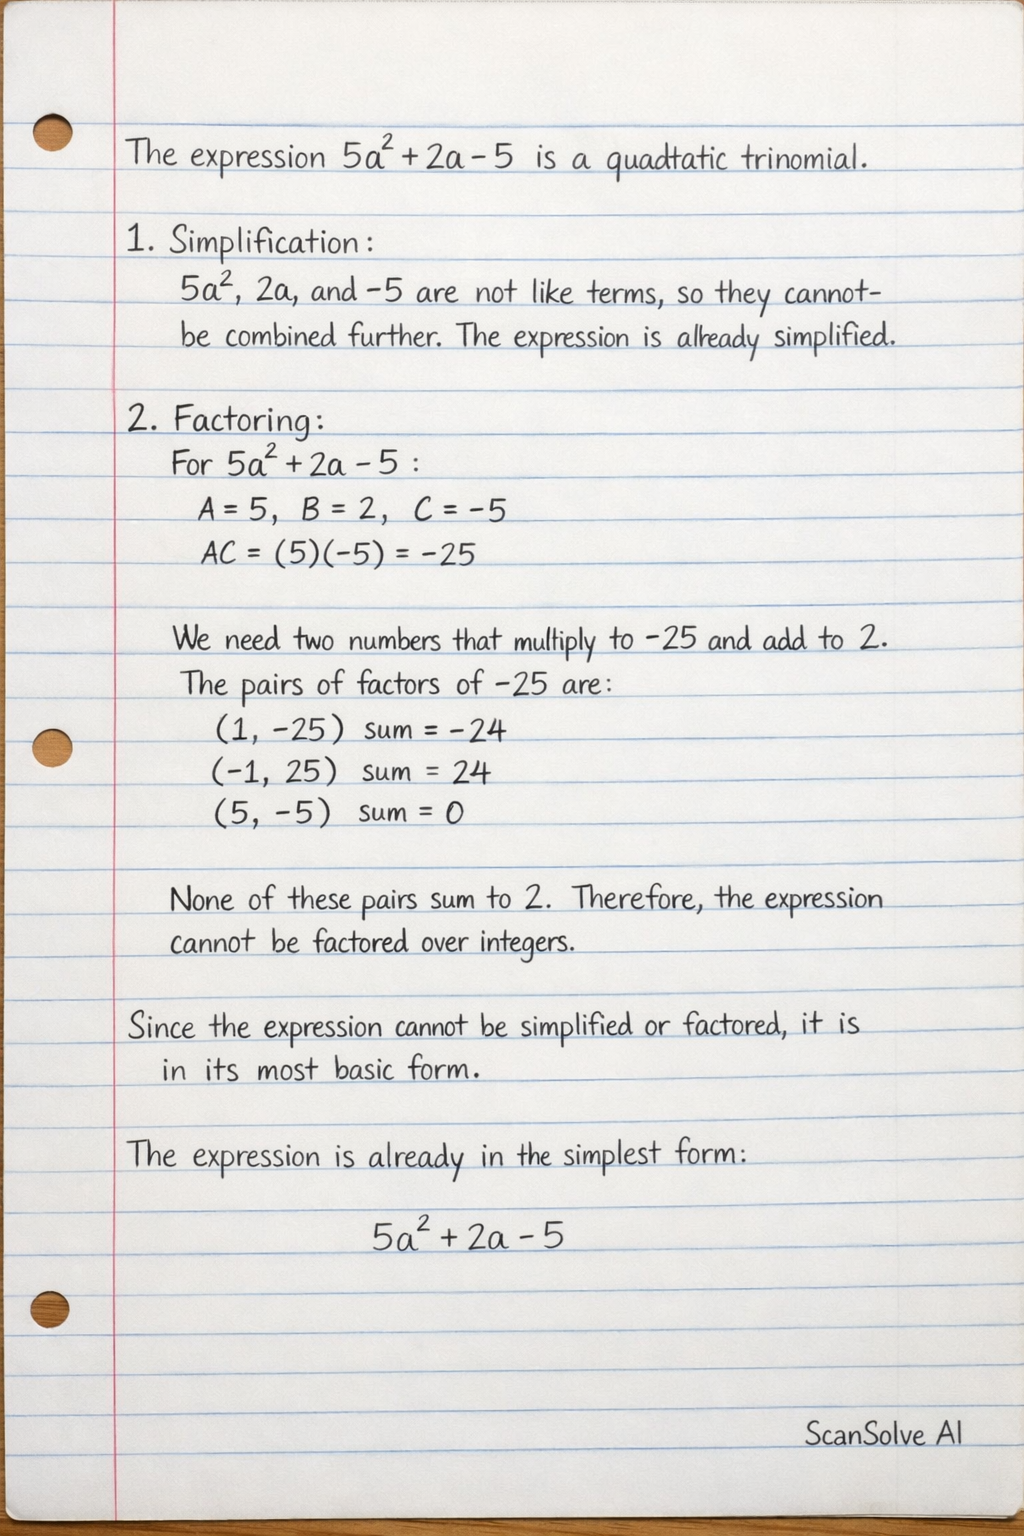 The expression 5a² + 2a - 5 is a quadtatic trinomial.
1. Simplification:
5a², 2a, and -5 are not like terms, so they cannot-
be combined further. The expression is already simplified.
2. Factoring:
For 5a² + 2a - 5 :
A = 5, B = 2, C = -5
AC = (5)(-5) = -25
We need two numbers that multiply to -25 and add to 2.
The pairs of factors of -25 are:
(1, -25) sum = -24
(-1, 25) sum = 24
(5, -5) sum = 0
None of these pairs sum to 2. Therefore, the expression
cannot be factored over integers.
Since the expression cannot be simplified or factored, it is
in its most basic form.
The expression is already in the simplest form:
5a² + 2a - 5
ScanSolve AI